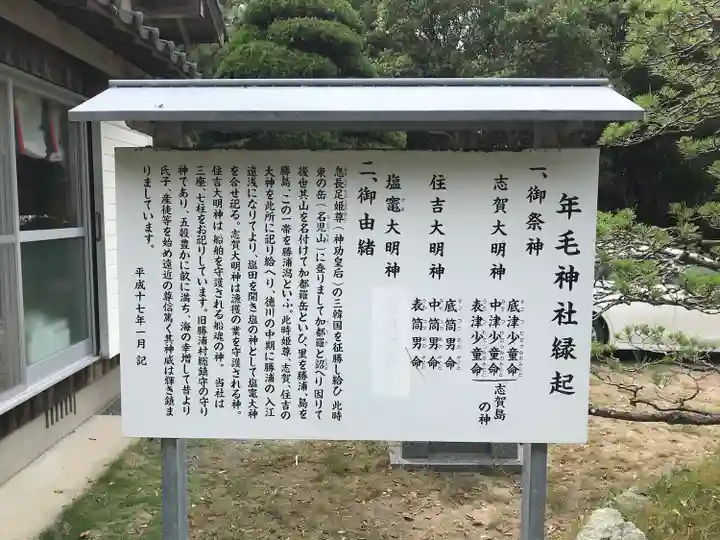 年毛神社縁起
一、御祭神
志賀大明神
底津少童命
中津少童命
表津少童命
志賀島の神
住吉大明神
底筒男命
中筒男命
表筒男命
塩竈大明神
二、御由緒
息長足姫尊（神功皇后）の三韓国を征勝し給ひ 此時
東の岳（名児山）に登りまして加都羅と詔へり因りて
後也其山を名付けて加都羅岳といひ、里を勝浦、島を
勝島、この一帯を勝浦潟といふ。此時姫尊、志賀、住吉の
大神を此所に記り給へり、徳川の中期に勝浦の入江
遠浅になりてより、塩田を開き塩の神として塩竈大神
を合せ祀る。志賀大明神は漁獲の業を守護される神。
住吉大明神は船舶を守護される船魂の神。当社は
三座、七柱をお記りしています。旧勝浦村総鎮守の守り
神であり、五穀豊かに畝に満ち、海の幸増して昔より
氏子、産徒等を始め遠近の尊信篤く其神威は輝き鎮ま
りましています。
平成十七年一月 記